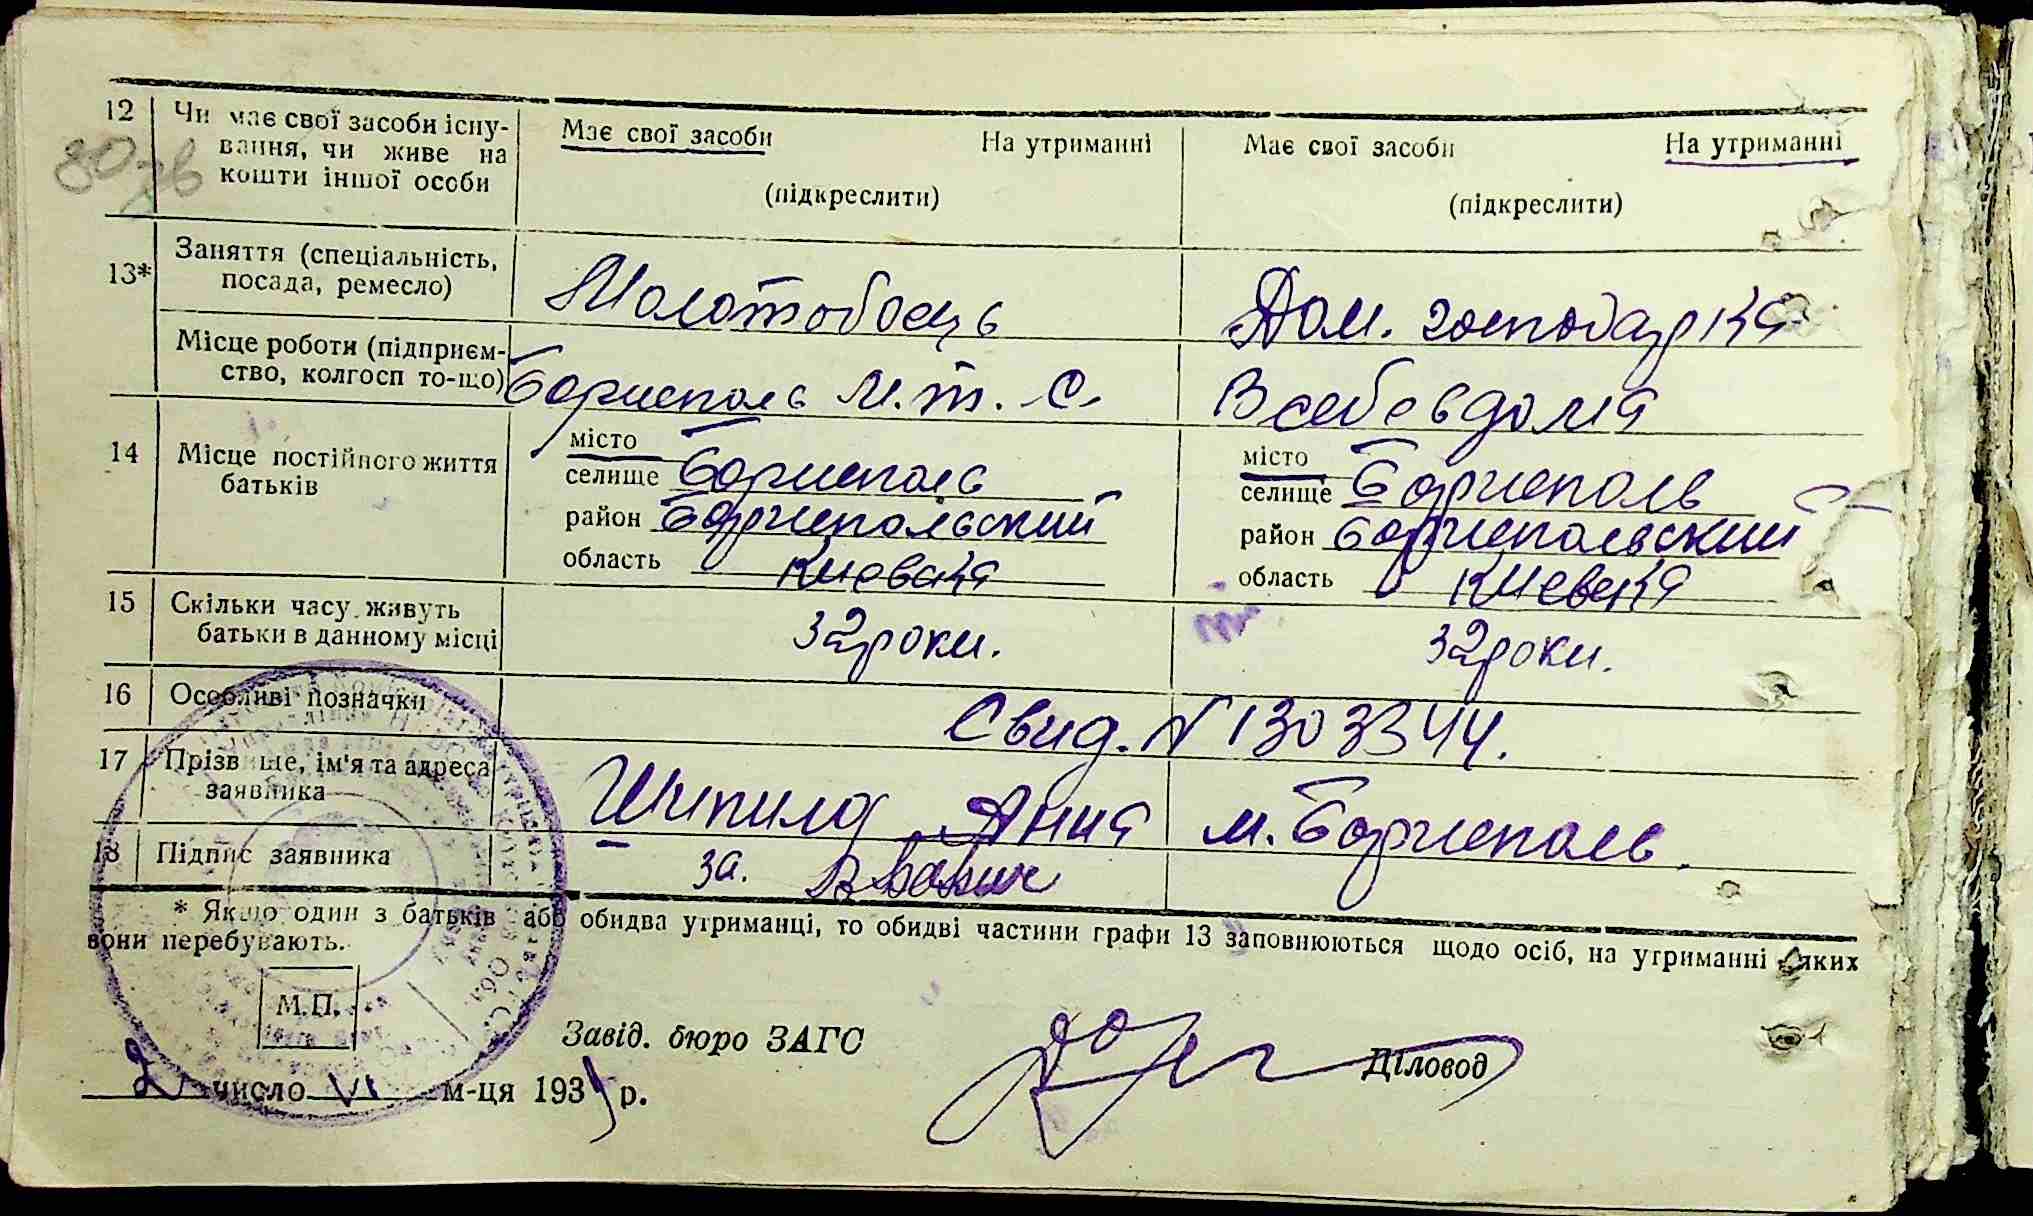 12 Чи має свої засоби існу-
вання, чи живе на
кошти іншої особи
80
Має свої засоби На утриманні
(підкреслити)
Має свої засоби На утриманні
(підкреслити)
13* Заняття (спеціальність,
посада, ремесло)
Молотобоець
Дом. господарка
Місце роботи (підприєм-
ство, колгосп то-що)
Бориспіль М.т.С.
В себе вдома
14 Місце постійного життя
батьків
місто
селище Бориспіль
район Бориспольский
область Киевска
місто
селище Борисполь
район Бориспольский
область Киевска
15 Скільки часу живуть
батьки в данному місці
32 роки.
32 роки.
16 Особливі позначки
Свид. № 1303344.
17 Прізвище, ім'я та адреса
заявника
Шипила Анна м. Борисполь.
18 Підпис заявника
за.
* Якщо один з батьків або обидва утриманці, то обидві частини графи 13 заповнюються щодо осіб, на утриманні яких
вони перебувають.
М.П.
Завід. бюро ЗАГС
Діловод
2 число VI м-ця 193 р.